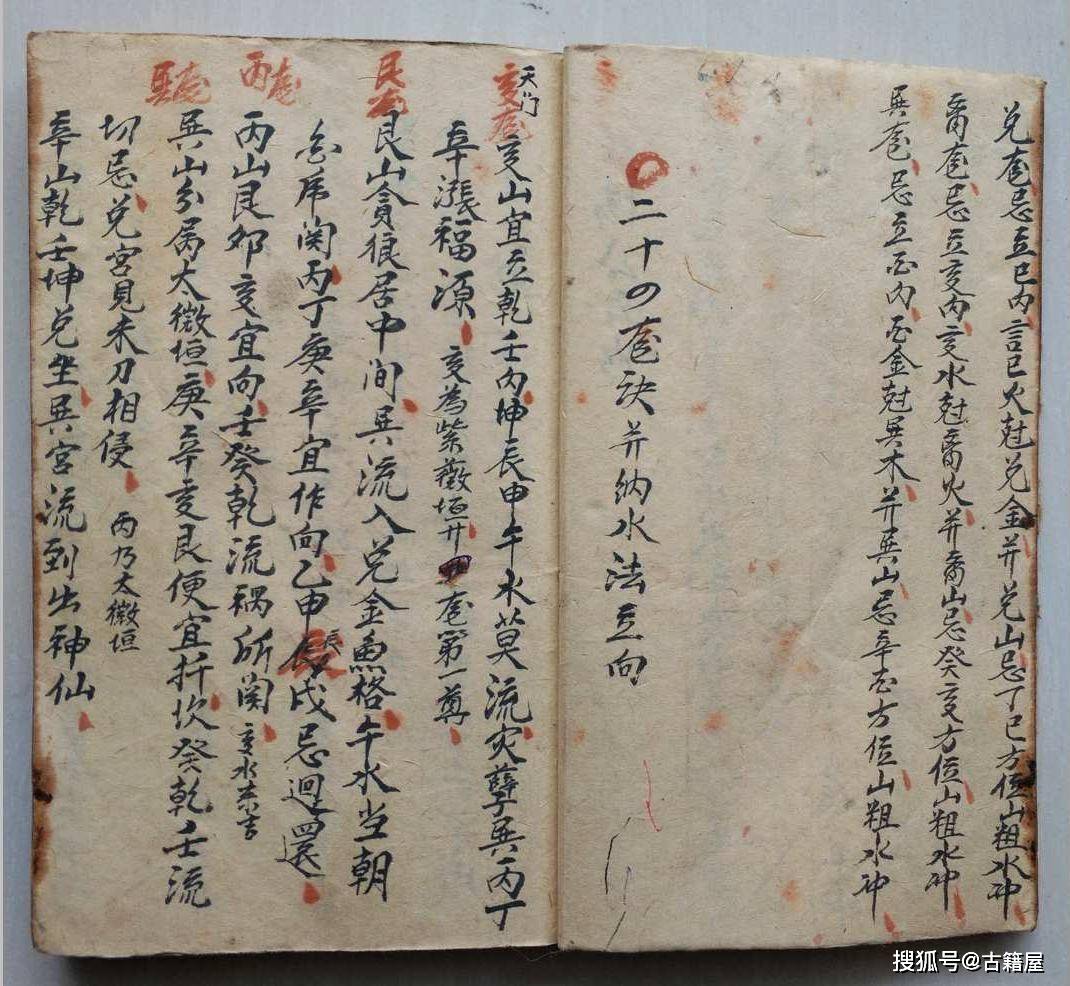 兑龍忌立巳丙言巳火尅兑金并兑山忌丁巳方位山粗水冲
离龍忌立亥丙亥水尅离火并离山忌癸亥方位山粗水冲
巽龍忌立酉丙酉金尅巽木并巽山忌辛酉方位山粗水冲
二十四龍訣并納水法立向
天门
亥龍
亥山宜立乾壬丙坤辰申午水莫流灾孽巽丙丁
辛漲福源 亥為紫薇垣廾四龍第一尊
艮龍
艮山貪狼居中间巽流入兑金魚格午水当朝
関丙丁庚辛宜作向乙申辰戌忌迴還
丙龍
丙山艮卯亥宜向壬癸乾流禍所関 亥水来吉
巽龍
巽山分属太微垣庚辛亥艮便宜扦坎癸乾壬流
切忌兑宫見未刀相侵 丙乃太微垣
辛山乾壬坤兑坐巽宫流到出神仙
搜狐号@古籍屋